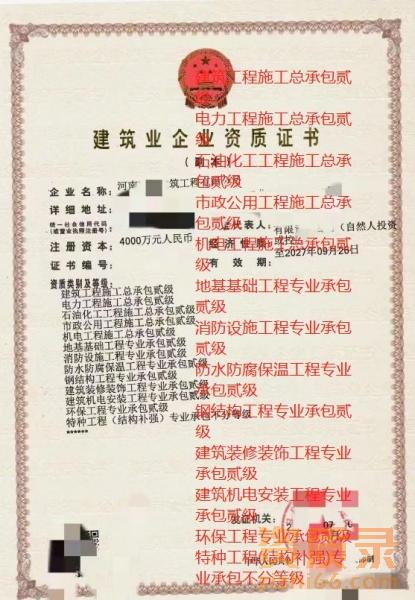 建筑业企业资质证书
(副本)
企业名称:河南 筑工程有限公司
详细地址:
统一社会信用代码
(或营业执照注册号):
法定代表人:
注册资本:4000万元人民币
经济性质:有限 (自然人投资
或控
证书编号:
有效期:至2027年09月26日
资质类别及等级:
建筑工程施工总承包贰级
电力工程施工总承包贰级
石油化工工程施工总承包贰级
市政公用工程施工总承包贰级
机电工程施工总承包贰级
地基基础工程专业承包贰级
消防设施工程专业承包贰级
防水防腐保温工程专业承包贰级
钢结构工程专业承包贰级
建筑装修装饰工程专业承包贰级
建筑机电安装工程专业承包贰级
环保工程专业承包贰级
特种工程(结构补强)专业承包不分等级
******
发证机关:
07
建筑工程施工总承包贰
级
电力工程施工总承包贰
级
石油化工工程施工总承
包贰级
市政公用工程施工总承
包贰级
机电工程施工总承包贰
级
地基基础工程专业承包
贰级
消防设施工程专业承包
贰级
防水防腐保温工程专业
承包贰级
钢结构工程专业承包贰
级
建筑装修装饰工程专业
承包贰级
建筑机电安装工程专业
承包贰级
环保工程专业承包贰级
特种工程(结构补强)专
业承包不分等级